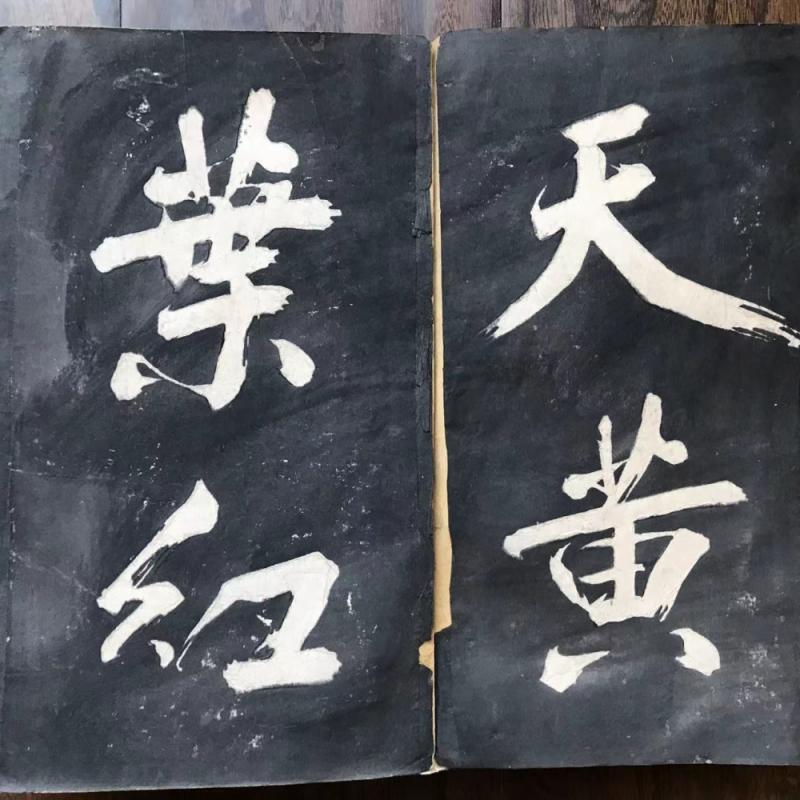 天黄
葉紅